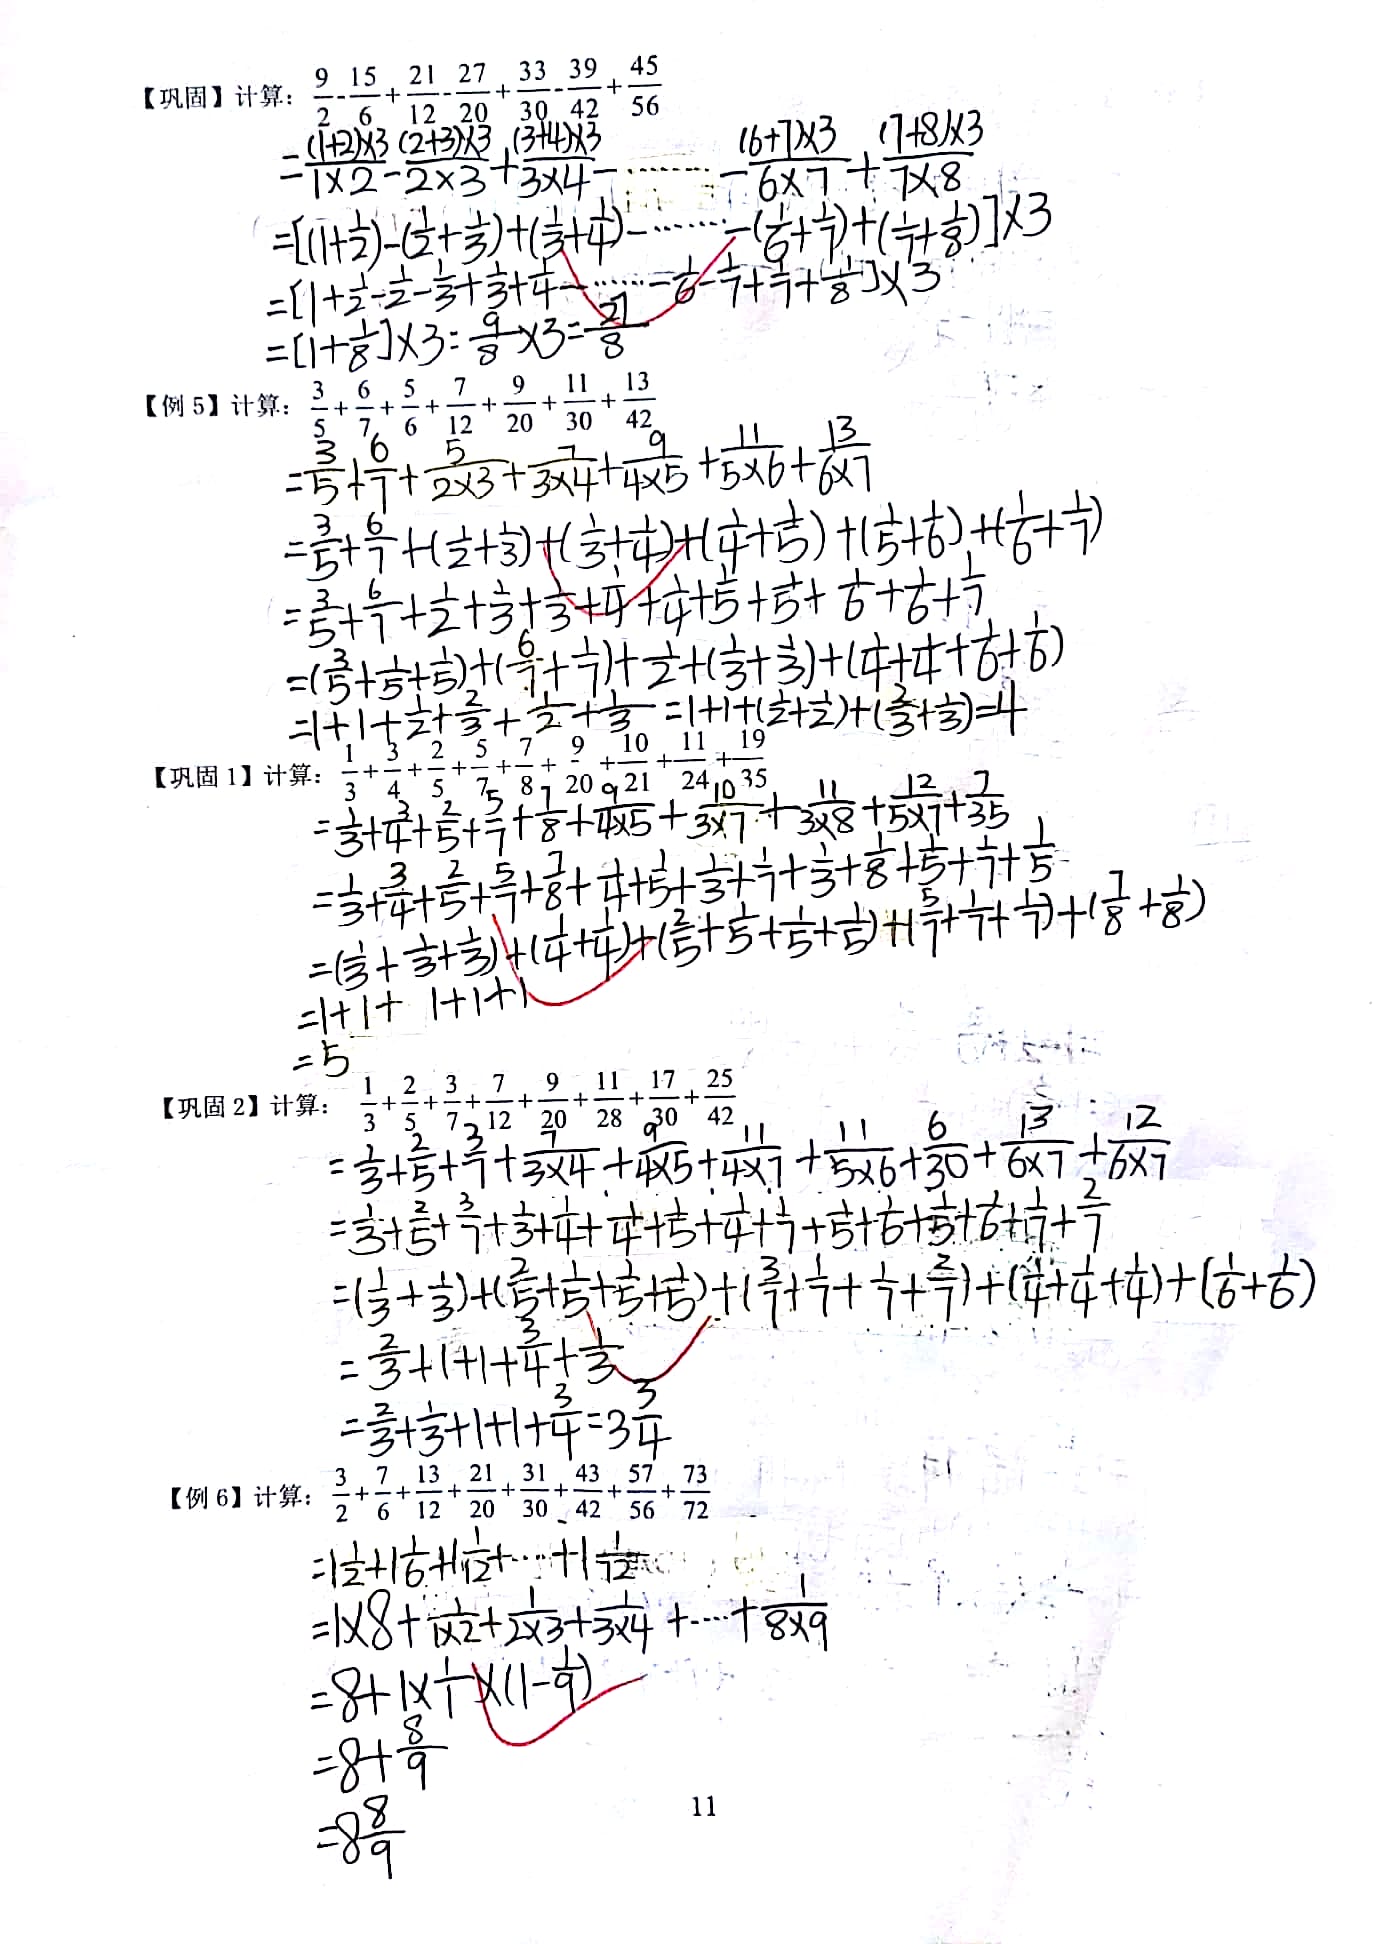 【巩固】计算：9/2-15/6+21/12-27/20+33/30-39/42+45/56
=(1+2)×3/1×2-(2+3)×3/2×3+(3+4)×3/3×4-……-(6+7)×3/6×7+(7+8)×3/7×8
=[(1+1/2)-(1/2+1/3)+(1/3+1/4)-……-(1/6+1/7)+(1/7+1/8)]×3
=[1+1/2-1/2-1/3+1/3+1/4-……-1/6-1/7+1/7+1/8]×3
=[1+1/8]×3=9/8×3=27/8
【例 5】计算：3/5+6/7+5/6+7/12+9/20+11/30+13/42
=3/5+6/7+5/2×3+7/3×4+9/4×5+11/5×6+13/6×7
=3/5+6/7+(1/2+1/3)+(1/3+1/4)+(1/4+1/5)+(1/5+1/6)+(1/6+1/7)
=3/5+6/7+1/2+1/3+1/3+1/4+1/4+1/5+1/5+1/6+1/6+1/7
=(3/5+1/5+1/5)+(6/7+1/7)+1/2+(1/3+1/3)+(1/4+1/4+1/6+1/6)
=1+1+1/2+2/3+1/2+1/3=1+1+(1/2+1/2)+(2/3+1/3)=4
【巩固 1】计算：1/3+3/4+2/5+5/7+7/8+9/20+10/21+11/24+19/35
=1/3+3/4+2/5+5/7+7/8+9/4×5+10/3×7+11/3×8+12/5×7+7/35
=1/3+3/4+2/5+5/7+7/8+1/4+1/5+1/3+1/7+1/3+1/8+1/5+1/7+1/5
=(1/3+1/3+1/3)+(1/4+1/4)+(2/5+1/5+1/5+1/5)+(5/7+1/7+1/7)+(7/8+1/8)
=1+1+ 1+1+1
=5
【巩固 2】计算： 1/3+2/5+3/7+7/12+9/20+11/28+17/30+25/42
=1/3+2/5+3/7+7/3×4+9/4×5+11/4×7+11/5×6+6/30+13/6×7+12/6×7
=1/3+2/5+3/7+1/3+1/4+1/4+1/5+1/4+1/7+1/5+1/6+1/5+1/6+1/7+2/7
=(1/3+1/3)+(2/5+1/5+1/5+1/5)+(3/7+1/7+1/7+2/7)+(1/4+1/4+1/4)+(1/6+1/6)
=2/3+1+1+3/4+1/3
=2/3+1/3+1+1+3/4=3 3/4
【例 6】计算：3/2+7/6+13/12+21/20+31/30+43/42+57/56+73/72
=1 1/2+1 1/6+1 1/12+…+1 1/72
=1×8+1/1×2+1/2×3+1/3×4+…+1/8×9
=8+1×1/1×(1-1/9)
=8+8/9
=8 8/9
11